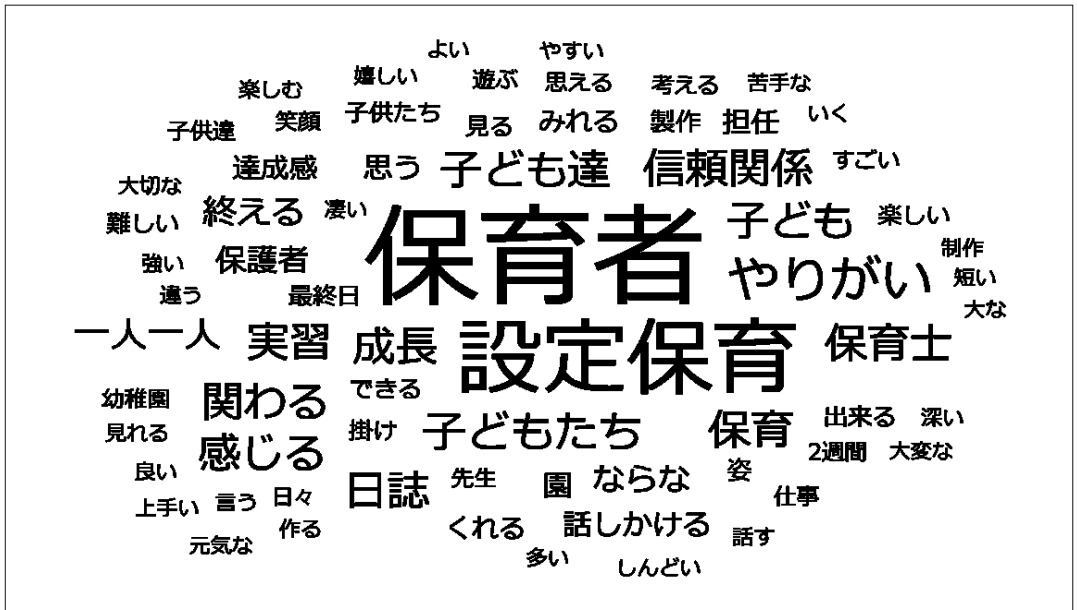 よい やすい
楽しむ 嬉しい 遊ぶ 思える 考える 苦手な
子供達 笑顔 子供たち 見る みれる 製作 担任 いく
達成感 思う 子ども達 信頼関係 すごい
大切な
難しい 終える 凄い 保育者 子ども 楽しい
強い 保護者 やりがい 制作
違う 最終日 短い
大な
一人一人 実習 成長 設定保育 保育士
幼稚園 関わる できる
見れる 感じる 掛け 子どもたち 保育 出来る 深い
良い 2週間 大変な
日誌 先生 園 ならな 姿
上手い 言う 日々 仕事
元気な 作る くれる 話しかける 話す
多い しんどい